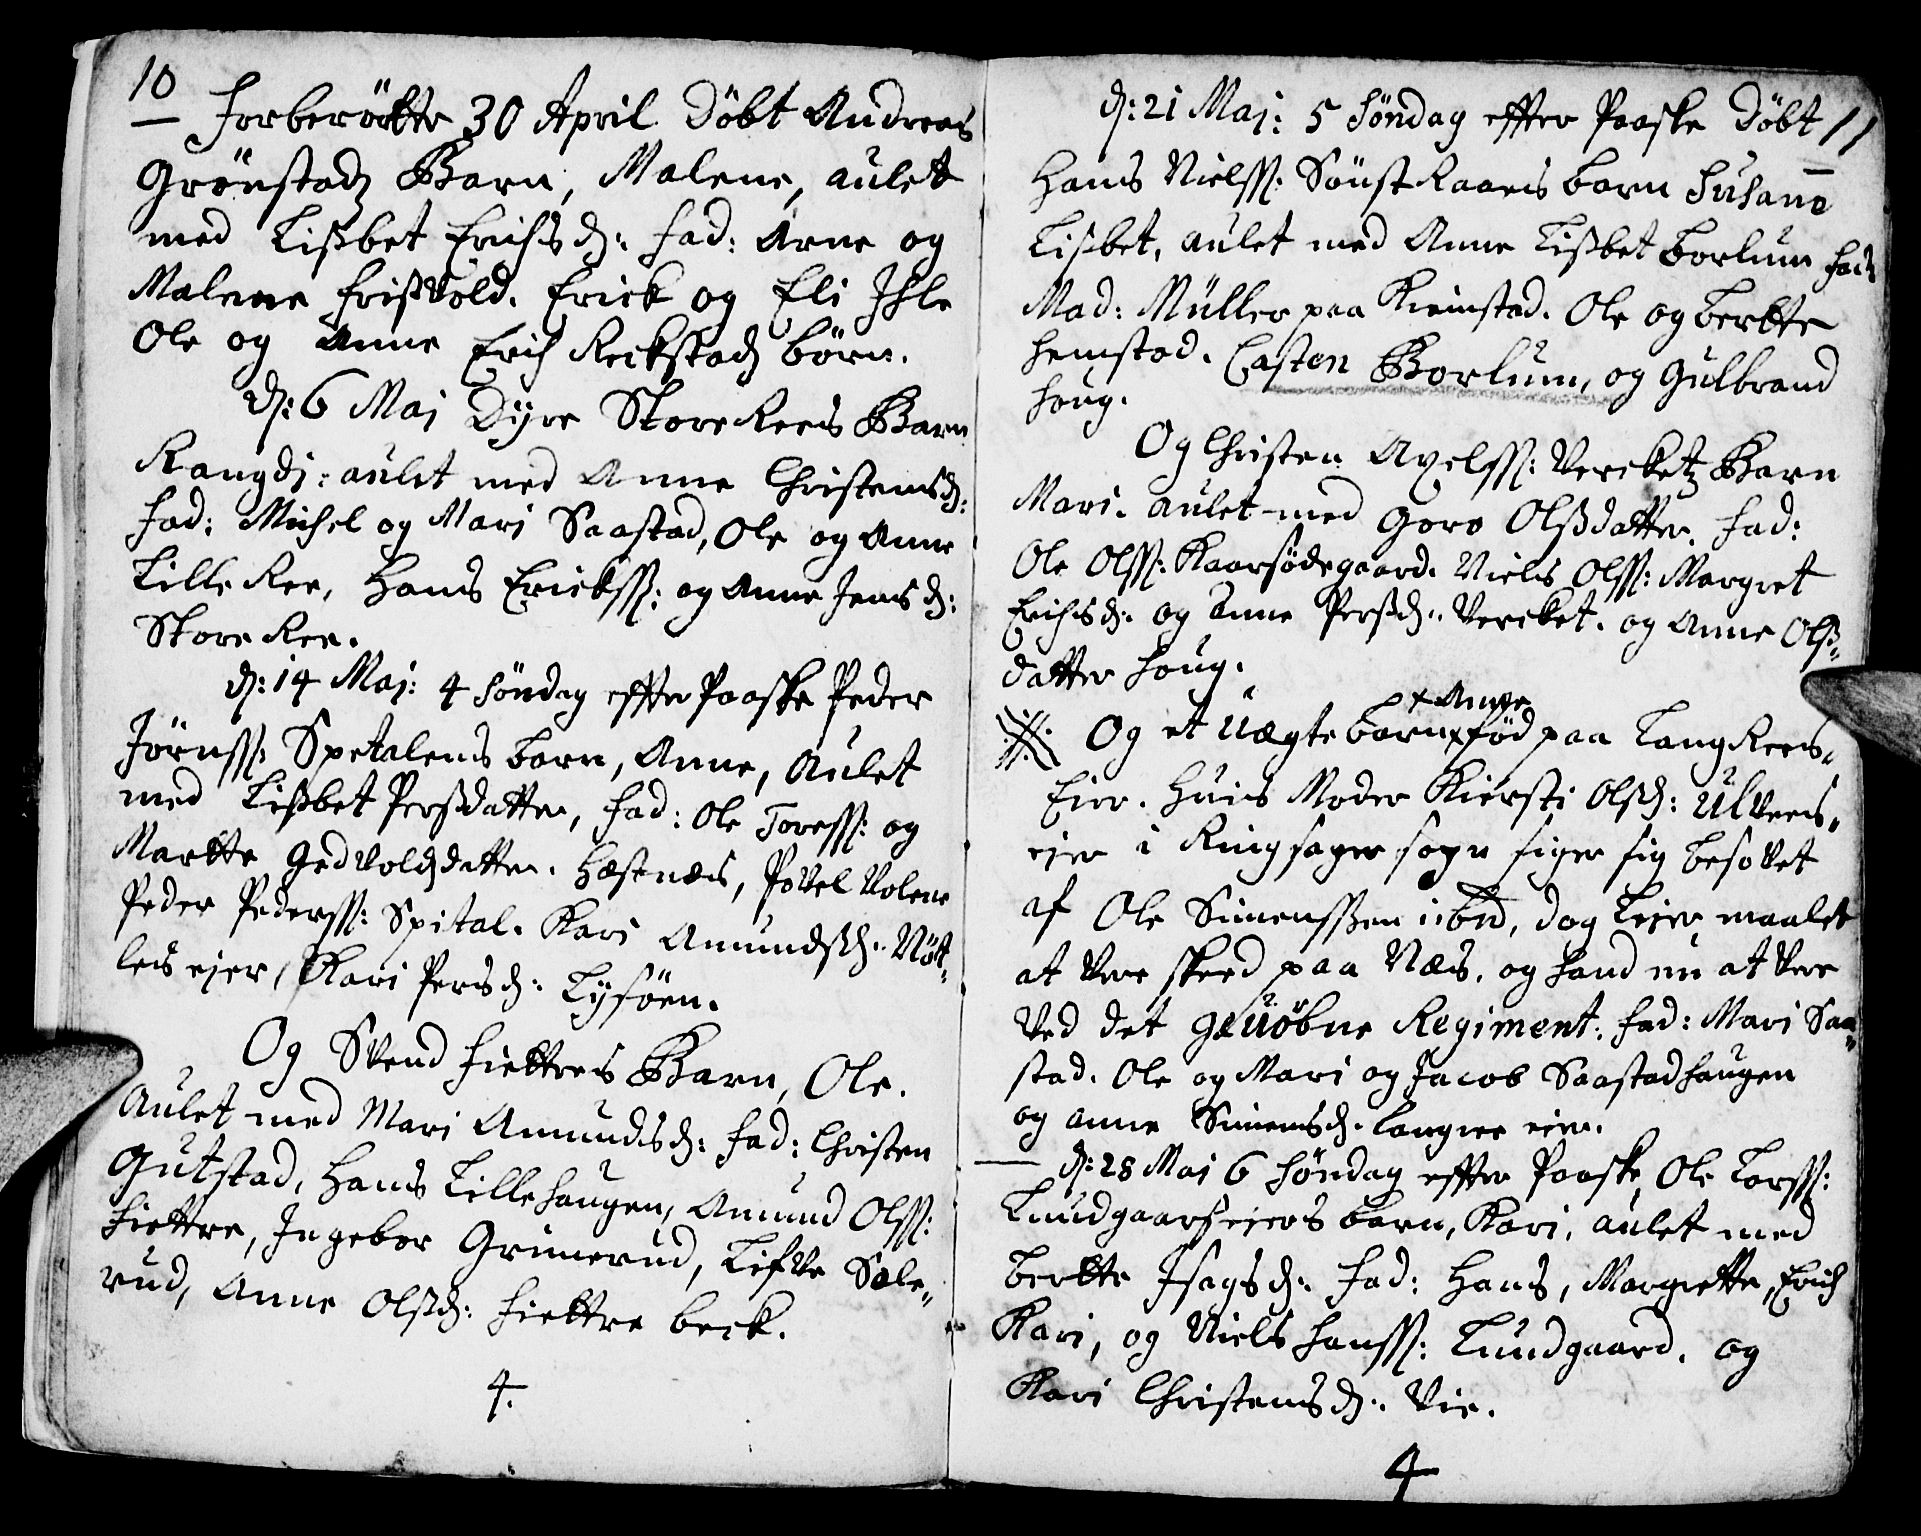 10
Forberörtte 30 April Döbt Andreas
Grönstadz Barn, Malene, aulet
med Lisbet Erichsd: fad: Arne og
Malene Frisvold. Erick og Eli Ihle
Ole og Anne Erich Reckstadz börn.
d: 6 Maj Dyre Store Rees Barn
Rangdj: aulet med Anne Christensd:
fad: Michel og Mari Saastad, Ole og Anne
Lille Ree, Hans Ericks: og Anne Jensd:
Store Ree.
d: 14 Maj: 4 Söndag effter Paaske Peder
Jörnss: Spetalens barn, Anne, Aulet
med Lisbet Persdatter, fad: Ole Toress: og
Martte Gedvoldsdatter. Hæstnæs, Povel Volene
Peder Pederss: Spital. Kari Amundsd: Nöt-
leis ejer, Kari Persd: Lysöen.
Og Svend Fiettres Barn, Ole.
Aulet med Mari Amundsd: fad: Christen
Gutstad, Hans Lillehaugen, Amund Olss:
Fiettre, Ingebor Grimerud, Lisve Sæle-
rud, Anne Olsd: Fiettre beck.
4.
11
d: 21 Maj: 5 Söndag effter Paaske Döbt
Hans Nielss: Sönst Raaens barn Susane
Lisbet, aulet med Anne Lisbet Borlum fad:
Mad: Müller paa Kiemstad. Ole og Bertte
Hemstad. Casten Borlum, og Gulbrand
Houg.
Og Christen Axelss: Vercketz Barn
Mari. aulet med Goro Olsdatter. fad:
Ole Olss: Kaarsödegaard. Niels Olss: Margret
Erichsd: og Anne Persd: Vercket. og Anne Ols-
datter Houg.
x Anne
Og et Uægte barn x föd paa Lang Rees-
Eier. Huis Moder Kiersti Olsd: Ulvens-
eier i Ringsager sogn siger sig besovet
af Ole Simenssen ibd, dog Leiermaalet
at vere skeed paa Næs. og hand nu at vere
ved det gevöbne Regiment. fad: Mari Saa-
stad. Ole og Mari og Jacob Saastadhaugen
og Anne Simensd. Langree eier.
d: 28 Maj 6 Söndag effter Paaske, Ole Larss:
Lundgaardseiers barn, Kari, aulet med
Bertte Isagsd: fad: Hans, Margrette, Erich
Kari, og Niels Hanss: Lundgaard. og
Kari Christensd: Vie.
4